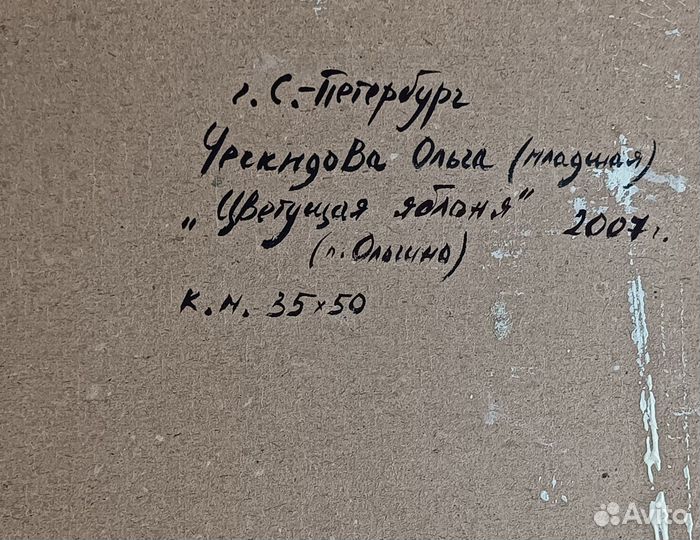 г. С.-Петербург
Чекмдова Ольга (младшая)
„Цветущая яблоня" 2007г.
(п. Ольгино)
К.М. 35х50
Avito